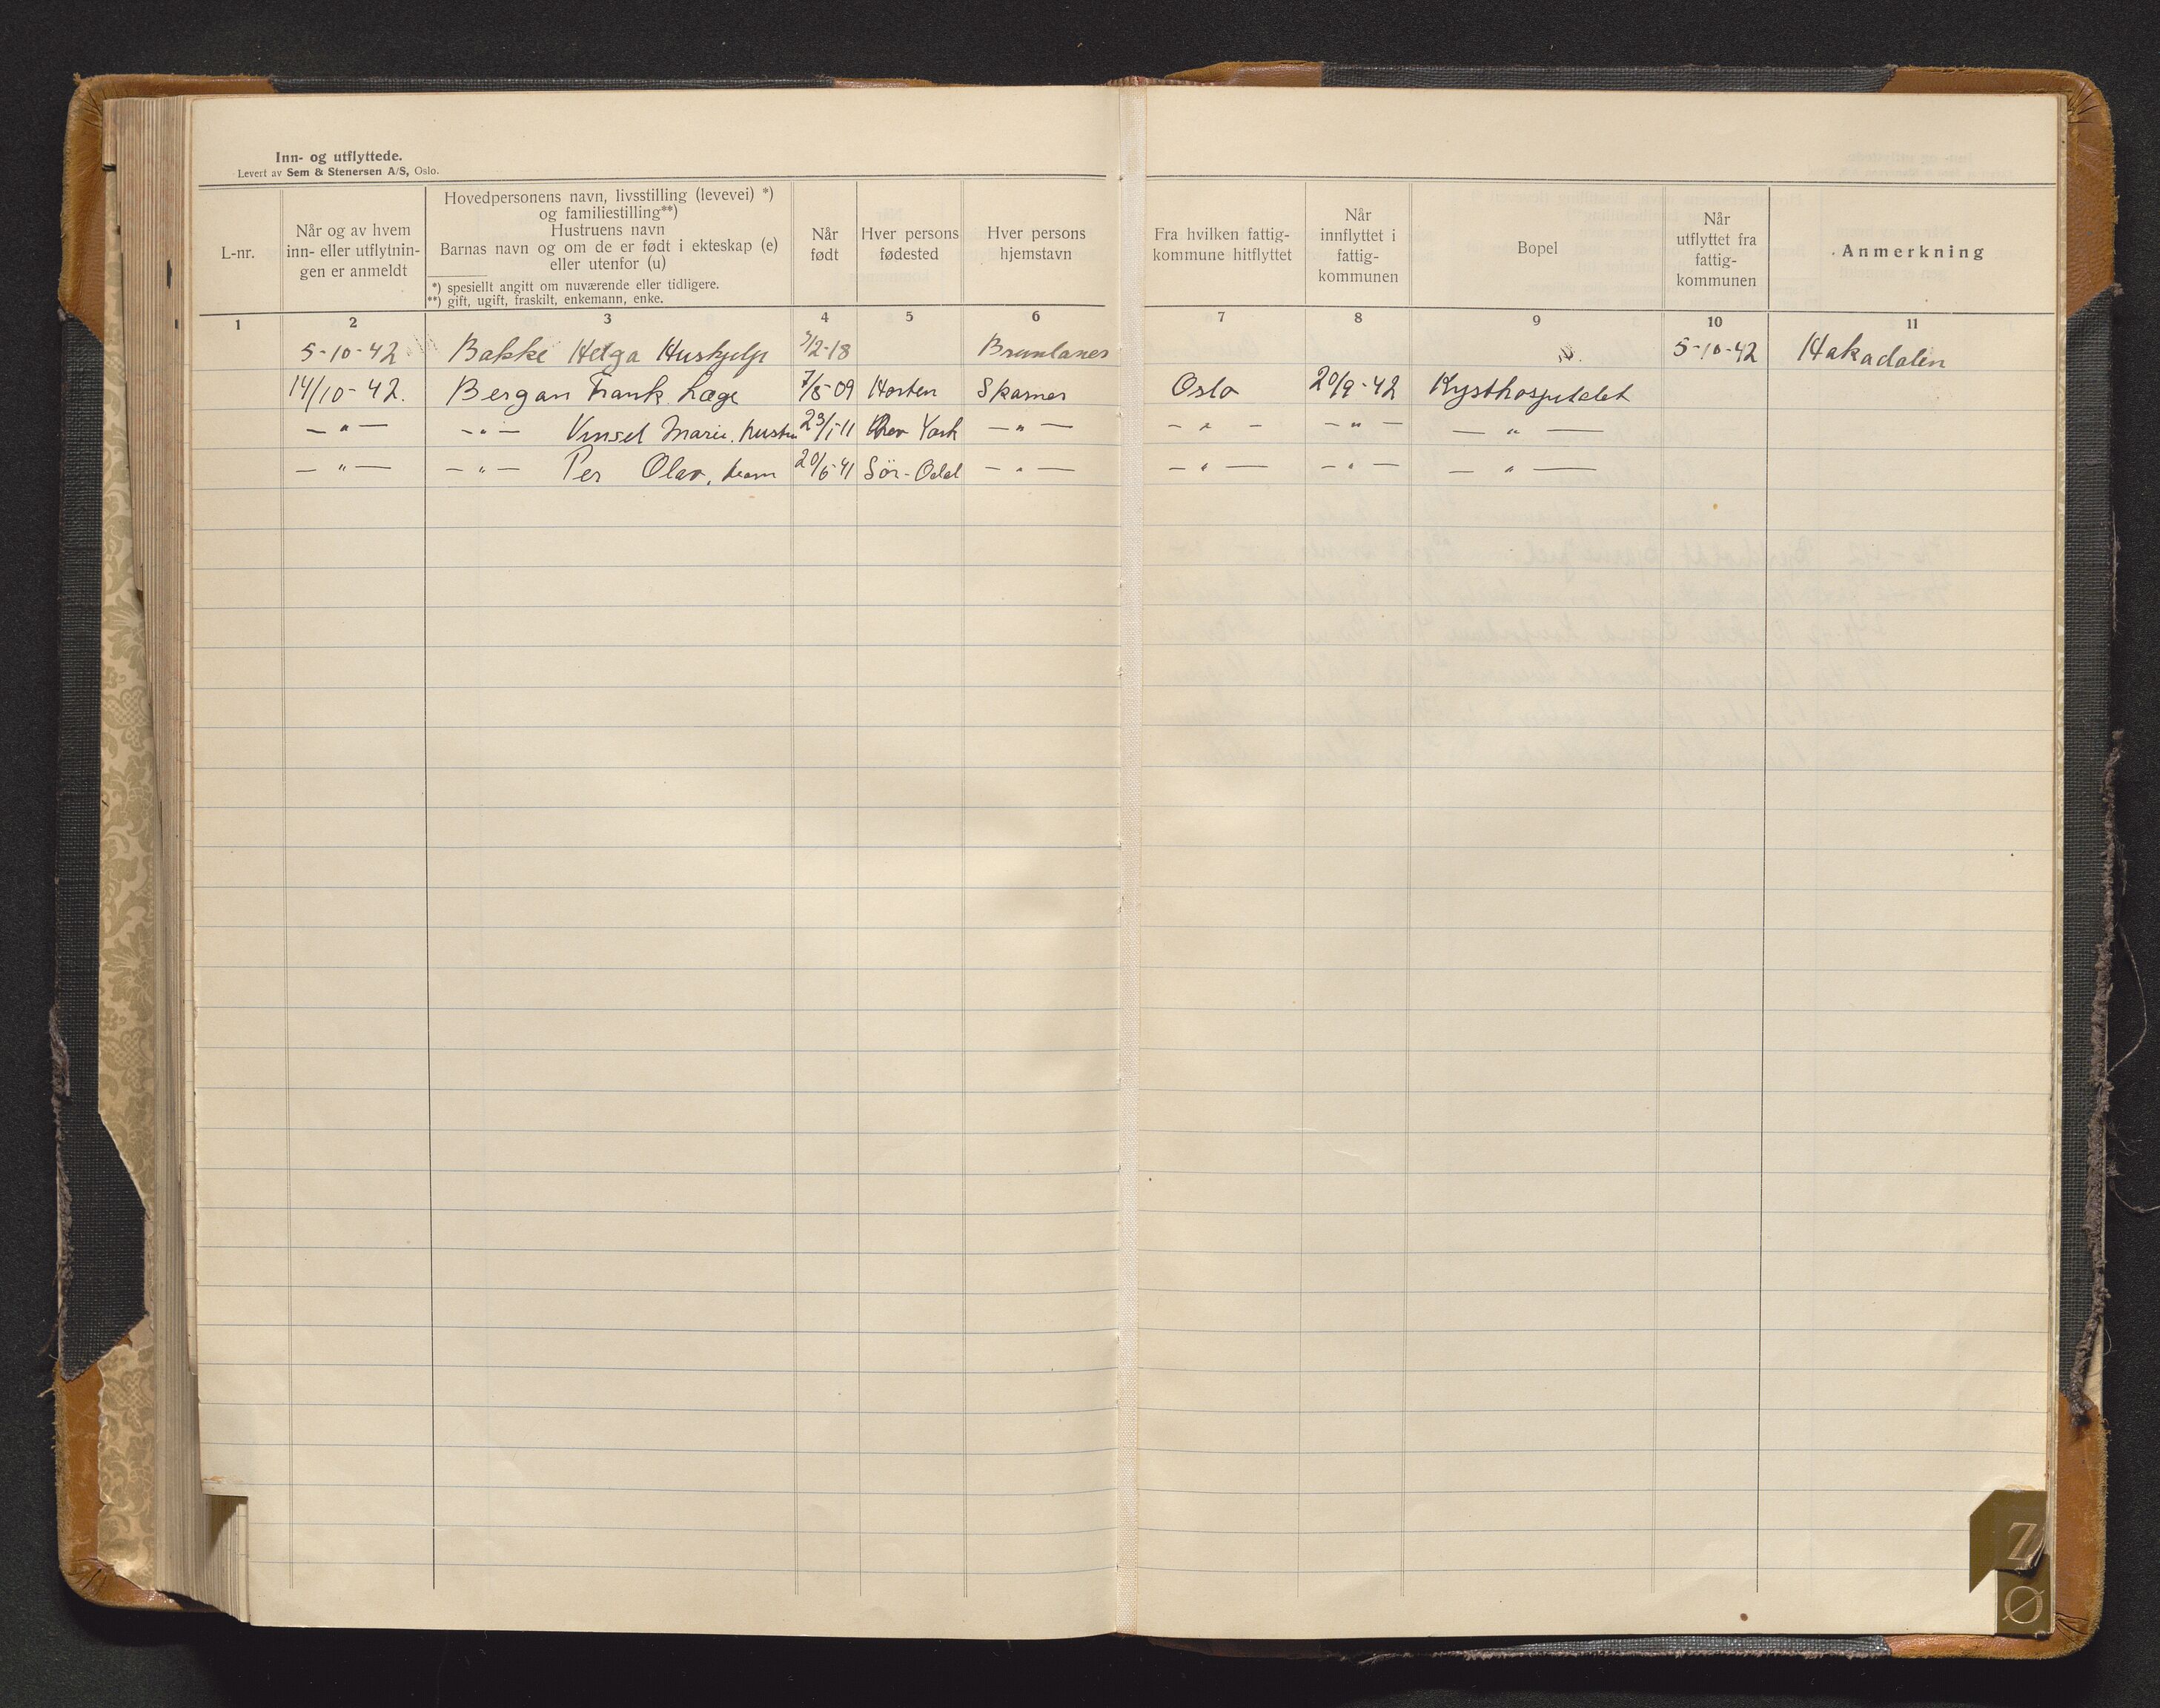 Inn- og utflyttede.
Levert av Sem & Stenersen A/S, Oslo.
L-nr.
Når og av hvem
inn- eller utflytnin-
gen er anmeldt
Hovedpersonens navn, livsstilling (levevei) *)
og familiestilling**)
Hustruens navn
Barnas navn og om de er født i ekteskap (e)
eller utenfor (u)
*) spesiellt angitt om nuværende eller tidligere.
**) gift, ugift, fraskilt, enkemann, enke.
Når
født
Hver persons
fødested
Hver persons
hjemstavn
Fra hvilken fattig-
kommune hitflyttet
Når
innflyttet i
fattig-
kommunen
Bopel
Når
utflyttet fra
fattig-
kommunen
Anmerkning
1 2 3 4 5 6 7 8 9 10 11
5-10-42 Bakke Helga Hushjelp 3/2-18 Brunlanes 5-10-42 Hakadalen
14/10-42. Bergan Frank Læge 7/8-09 Horten Skarnes Oslo 20/9-42 Kysthospitalet
— " — — " — Marie. hustru 23/1-11 New York — " — — " — — " — — " —
— " — — " — Per Olav, barn 20/6-41 Sör-Odal — " — — " — — " — — " —
Z
Ø